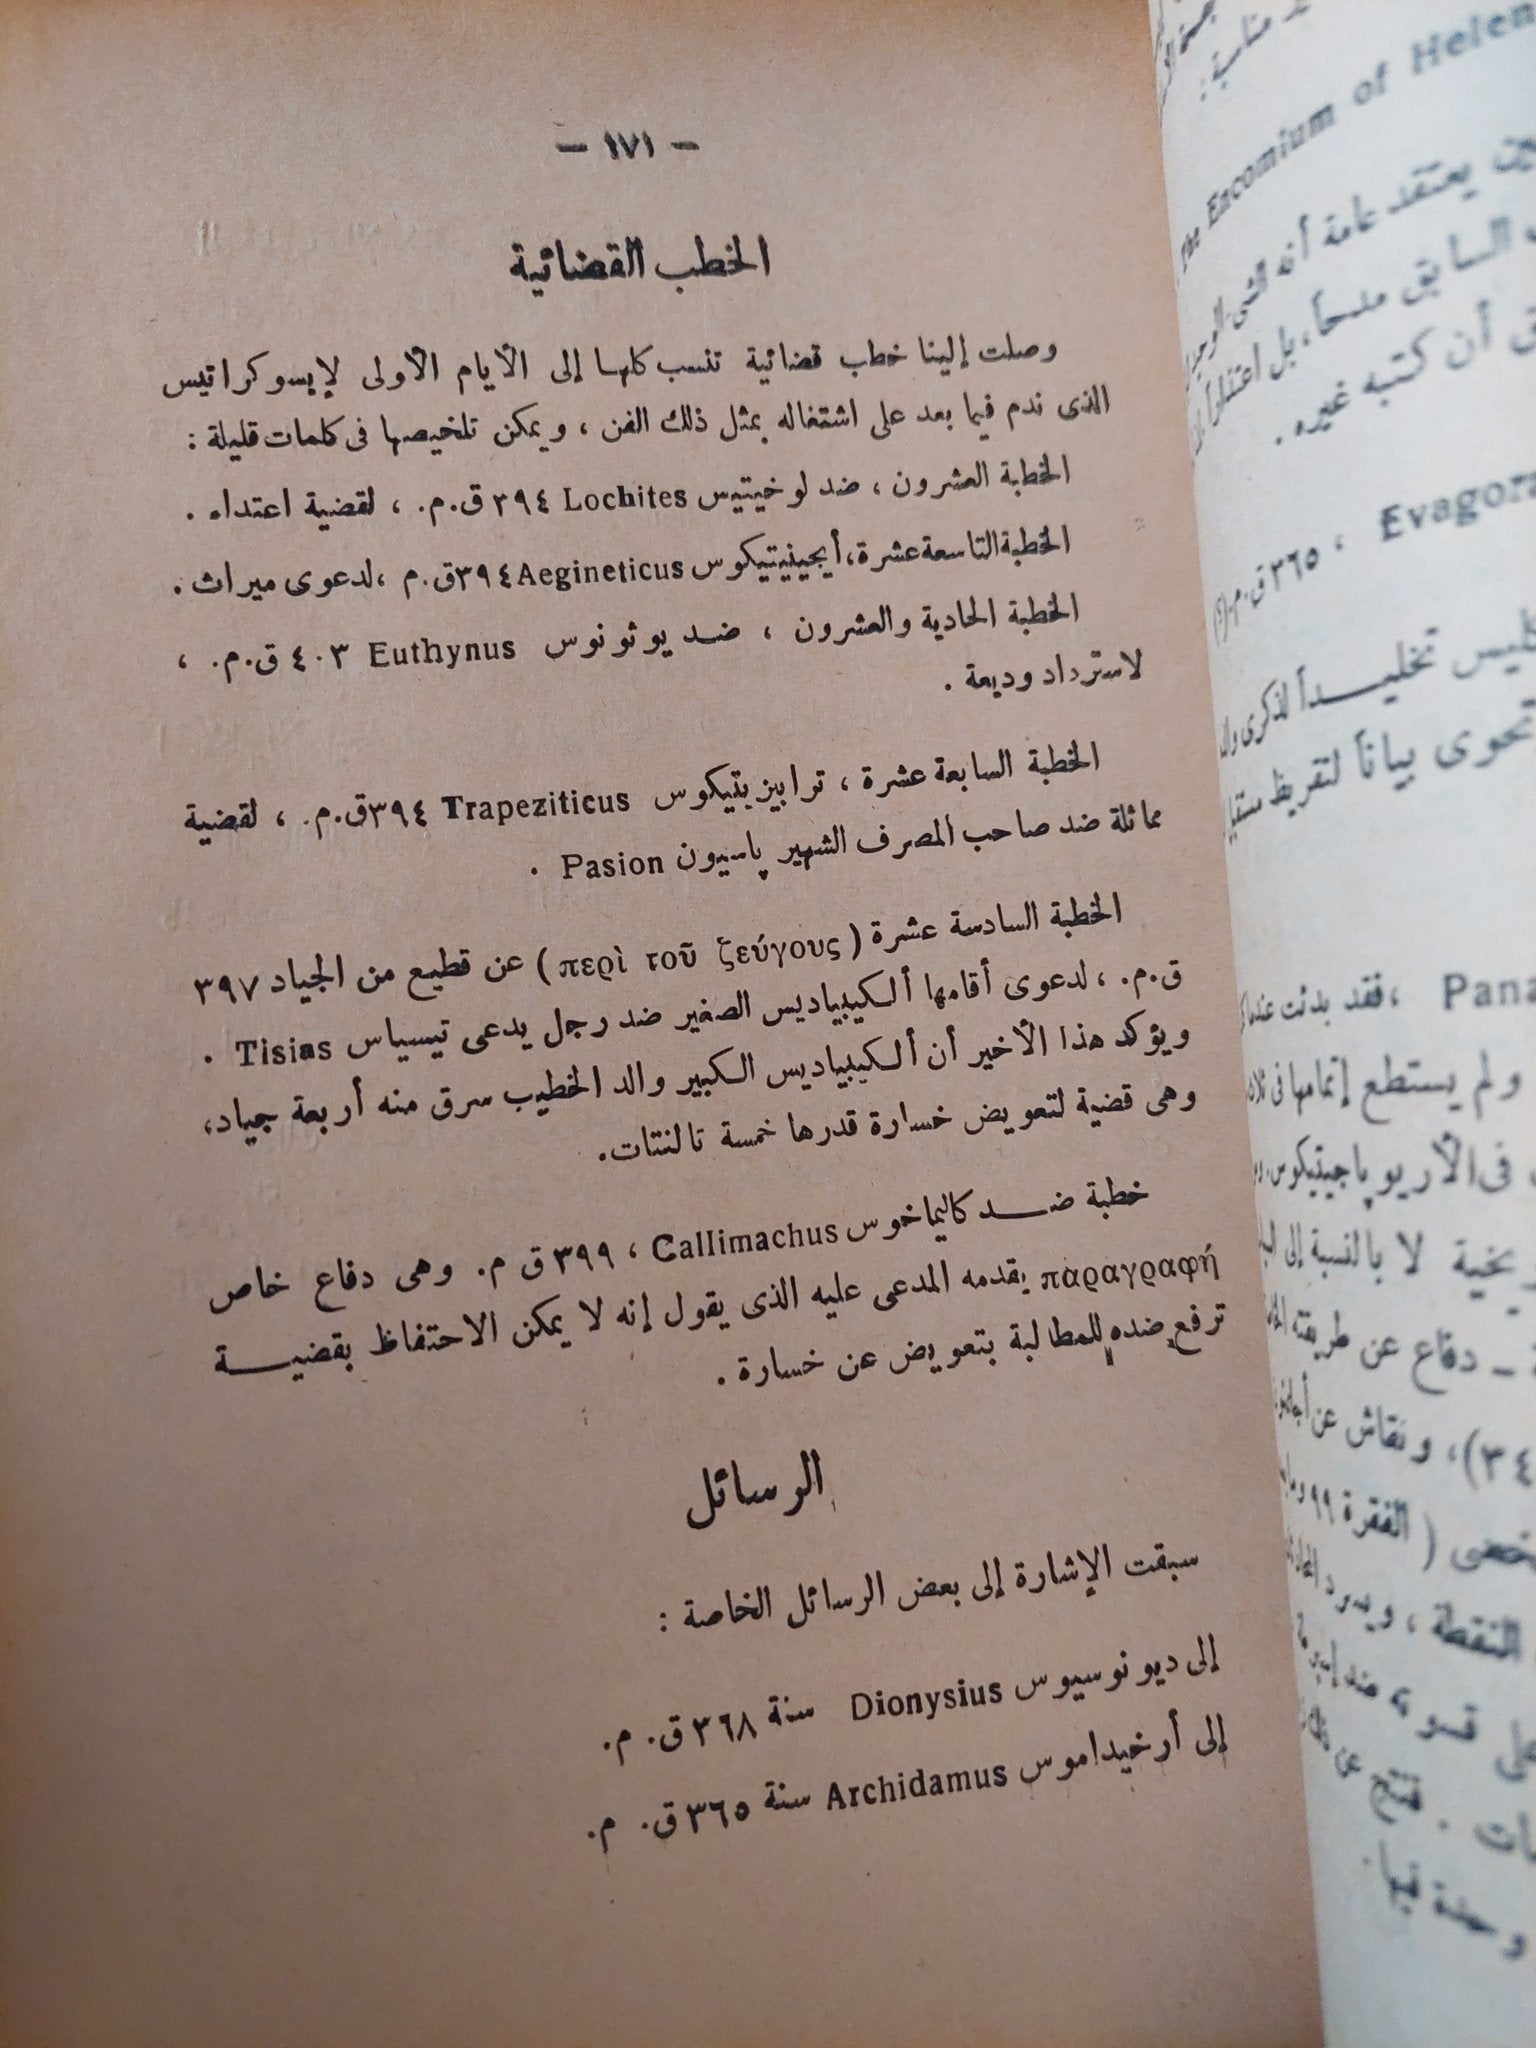 — ١٧١ —
الخطب القضائية
وصلت إلينا خطب قضائية تنسب كلها إلى الأيام الأولى لإيسوكراتيس
الذى ندم فيما بعد على اشتغاله بمثل ذلك الفن ، ويمكن تلخيصها فى كلمات قليلة :
الخطبة العشرون ، ضد لوخيتيس Lochites ٣٩٤ ق.م. ، لقضية اعتداء .
الخطبة التاسعة عشرة، أيجينيتيكوس Aegineticus ٣٩٤ ق.م ،لدعوى ميراث .
الخطبة الحادية والعشرون ، ضد يوثونوس Euthynus ٤٠٣ ق.م. ،
لاسترداد وديعة .
الخطبة السابعة عشرة ، ترابيزيتيكوس Trapeziticus ٣٩٤ ق.م. ، لقضية
مماثلة ضد صاحب المصرف الشهير پاسيون Pasion .
الخطبة السادسة عشرة ( περὶ τοῦ ζεύγους ) عن قطيع من الجياد ٣٩٧
ق.م. ، لدعوى أقامها ألكيبياديس الصغير ضد رجل يدعى تيسياس Tisias .
ويؤكد هذا الأخير أن ألكيبياديس الكبير والد الخطيب سرق منه أربعة جياد،
وهى قضية لتعويض خسارة قدرها خمسة تالنتات.
خطبة ضد كاليماخوس Callimachus ، ٣٩٩ ق م. وهى دفاع خاص
παραγραφή يقدمه المدعى عليه الذى يقول إنه لا يمكن الاحتفاظ بقضية
ترفع ضده للمطالبة بتعويض عن خسارة .
الرسائل
سبقت الإشارة إلى بعض الرسائل الخاصة :
إلى ديونوسيوس Dionysius سنة ٣٦٨ ق. م.
إلى أرخيداموس Archidamus سنة ٣٦٥ ق. م.
مناسبة :
The Encomium of Helen
يعتقد عامة أنه
السابق مدحاً، بل اعتذاراً
أن كتبه غيره .
Evagora ، ٣٦٥ ق.م.(؟)
تخليداً لذكرى
تحوى بياناً لتقريظ
Pana ، فقد بدئت عندما
ولم يستطع إتمامها فى
فى الأريوپاجيتيكوس
لا بالنسبة إلى
– دفاع عن طريقته
٣٤)، ونقاش عن
( الفقرة ٩٩
النقطة ، ويسرد
على قسوته ضد